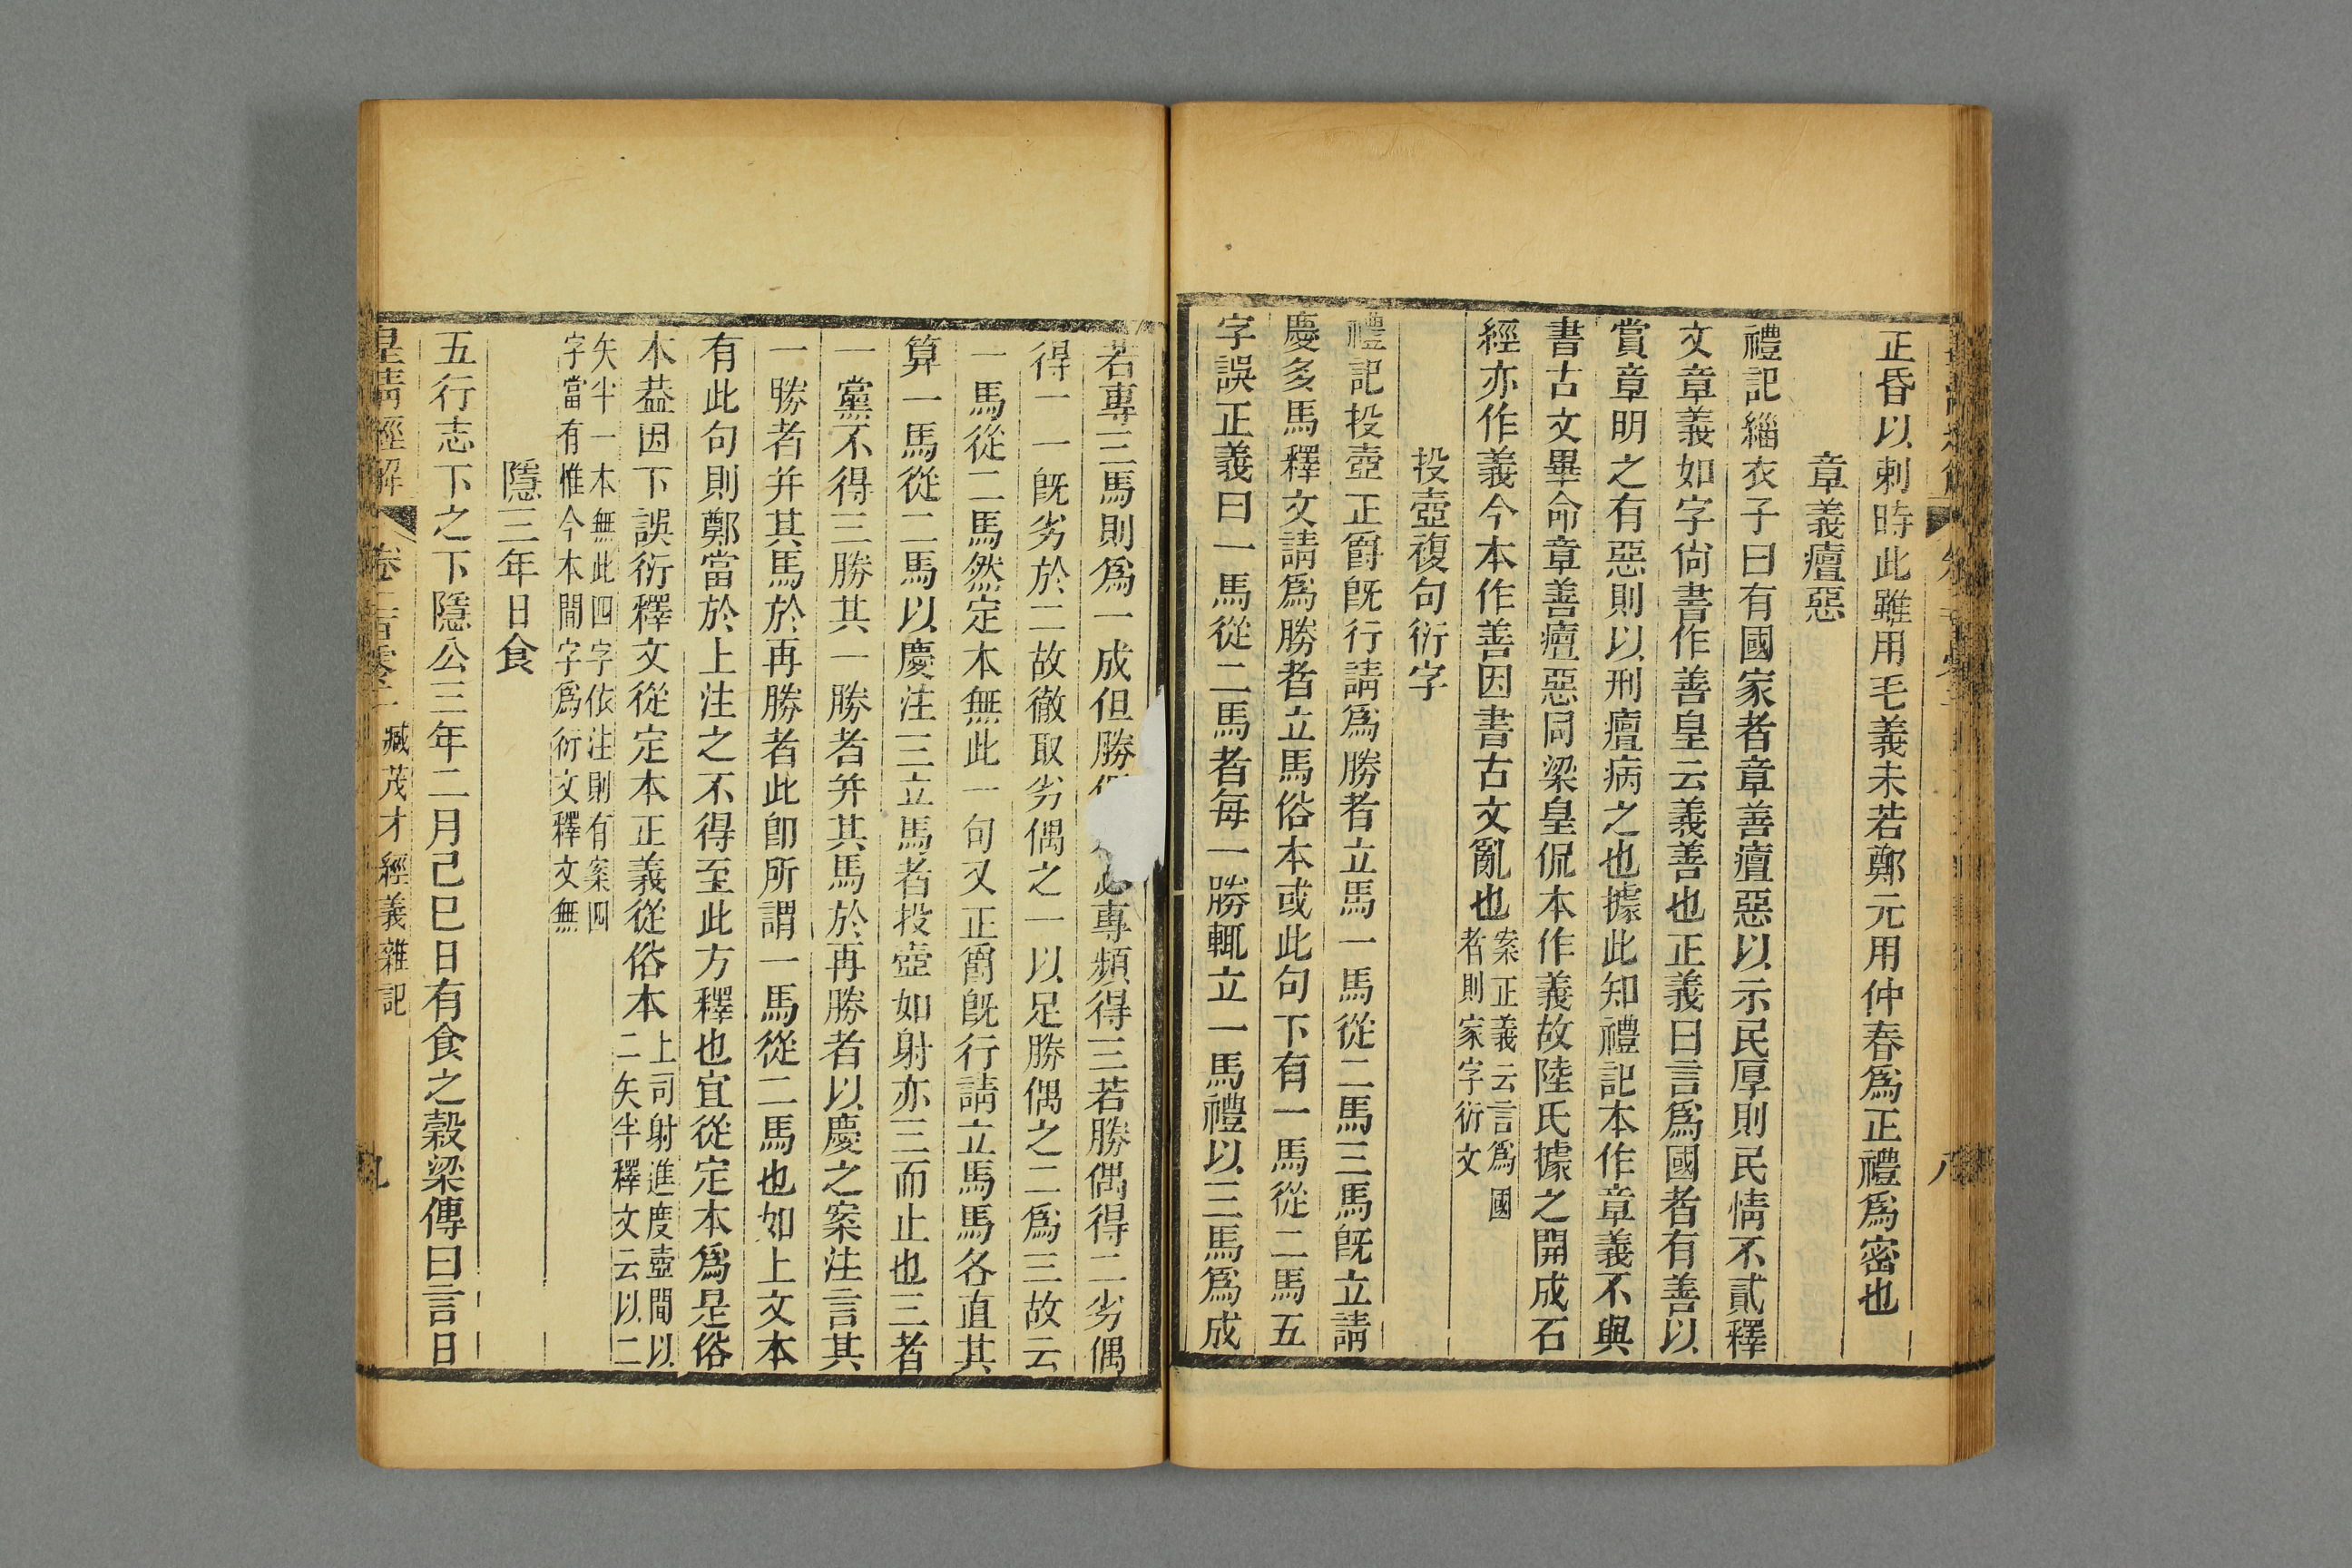 正昏以刺時此雖用毛義未若鄭元用仲春爲正禮爲密也
章義癉惡
禮記緇衣子曰有國家者章善癉惡以示民厚則民情不貳釋
文章義如字尙書作善皇云義善也正義曰言爲國者有善以
賞章明之有惡則以刑癉病之也據此知禮記本作章義不與
書古文畢命章善癉惡同梁皇侃本作義故陸氏據之開成石
經亦作義今本作善因書古文亂也
案正義云言爲國
者則家字衍文
投壺複句衍字
禮記投壺正爵旣行請爲勝者立馬一馬從二馬三馬旣立請
慶多馬釋文請爲勝者立馬俗本或此句下有一馬從二馬五
字誤正義曰一馬從二馬者每一勝輒立一馬禮以三馬爲成
八
若專三馬則爲一成但勝必專頻得三若勝偶得二劣偶
得一一旣劣於二故徹取劣偶之一以足勝偶之二爲三故云
一馬從二馬然定本無此一句又正爵旣行請立馬馬各直其
算一馬從二馬以慶注三立馬者投壺如射亦三而止也三者
一黨不得三勝其一勝者并其馬於再勝者以慶之案注言其
一勝者并其馬於再勝者此卽所謂一馬從二馬也如上文本
有此句則鄭當於上注之不得至此方釋也宜從定本爲是俗
本葢因下誤衍釋文從定本正義從俗本
上司射進度壺閒以
二矢半釋文云以二
矢半一本無此四字依注則有案四
字當有惟今本閒字爲衍文釋文無
隱三年日食
五行志下之下隱公三年二月己巳日有食之穀梁傳曰言日
皇淸經解
卷二百零二
臧茂才經義雜記
九